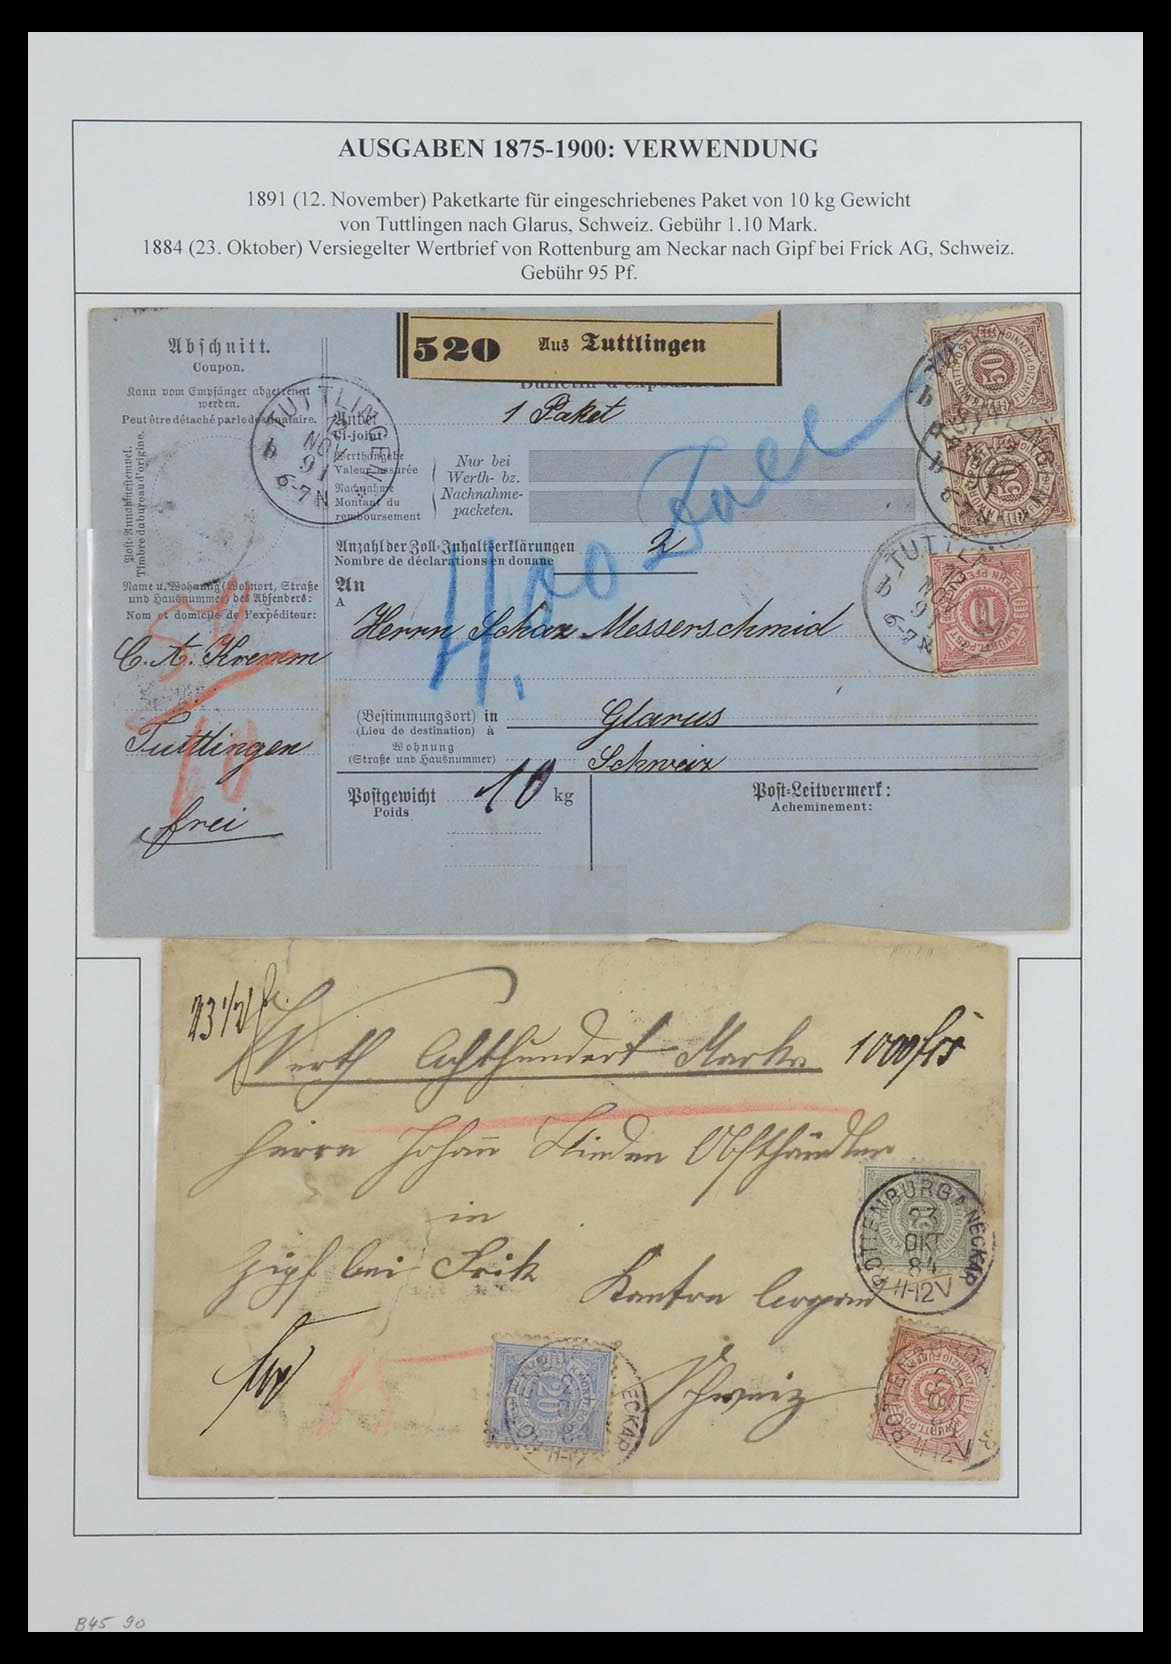 AUSGABEN 1875-1900: VERWENDUNG
1891 (12. November) Paketkarte für eingeschriebenes Paket von 10 kg Gewicht
von Tuttlingen nach Glarus, Schweiz. Gebühr 1.10 Mark.
1884 (23. Oktober) Versiegelter Wertbrief von Rottenburg am Neckar nach Gipf bei Frick AG, Schweiz.
Gebühr 95 Pf.
Abschnitt.
Coupon.
Kann vom Empfänger abgetrennt
werden.
Peut être détaché par le destinataire.
Post-Annahmestempel.
Timbre du bureau d'origine.
Name u. Wohnung (Wohnort, Straße
und Hausnummer) des Absenders:
Nom et domicile de l'expéditeur:
C. A. Kremm
Tuttlingen
frei
520 Aus Tuttlingen
1 Paket
Ci-joint
Werthangabe
Valeur assurée
Nachnahme
Montant du
remboursement
Nur bei
Werth- bz.
Nachnahme-
packeten.
Anzahl der Zoll-Inhaltserklärungen
Nombre de déclarations en douane
2
4,00
An
A
Herrn Schaz Messerschmid
(Bestimmungsort) in
(Lieu de destination) à
Glarus
Wohnung
(Straße und Hausnummer)
Schweiz
Postgewicht 10 kg
Poids
Post-Leitvermerk:
Acheminement:
TUTTLINGEN
12
NOV
91
6-7 N
b
50
50
TUTTLINGEN
NOV
91
6-7 N
10
Werth Achthundert Mark 1000 frs
Herrn Johann Obsthändler
in
Gipf bei Frik
Kanton Argau
Schweiz
ROTTENBURG A. NECKAR
23
OKT
84
11-12 V
20
25
B45 90